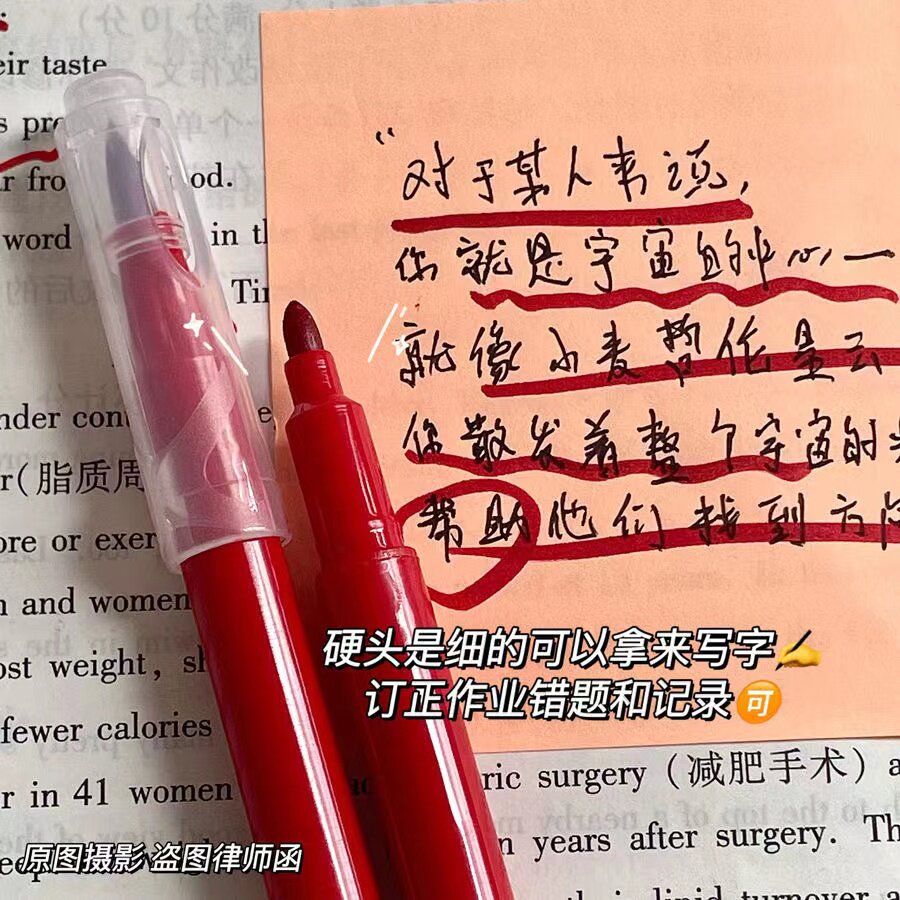 eir taste
s pre
r fro
od.
word
in th
Tim
nder cont
r(脂质周
ore or exer
n and women
ost weight, sh
fewer calories
r in 41 women
“对于某人来说，
你就是宇宙的中心一
就像小麦哲伦星云
你散发着整个宇宙的光
帮助他们找到方向
硬头是细的可以拿来写字✍
订正作业错题和记录🉑
ric surgery (减肥手术) a
n years after surgery. Th
lipid turnover a
原图摄影 盗图律师函